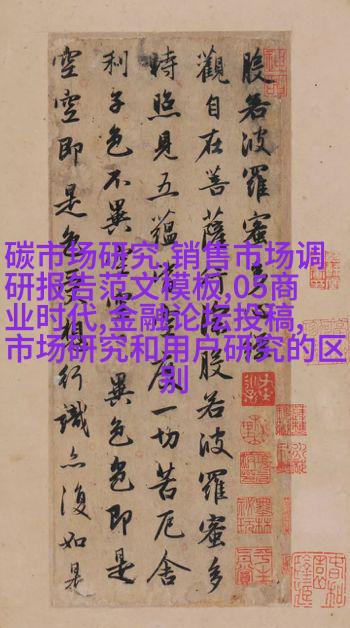 般若波羅蜜多心經
觀自在菩薩行深般若波羅蜜多
時照見五蘊皆空度一切苦厄舍
利子色不異空空不異色色即是
空空即是色受想行識亦復如是
碳市场研究,销售市场调
研报告范文模板,05商
业时代,金融论坛投稿,
市场研究和用户研究的区
别